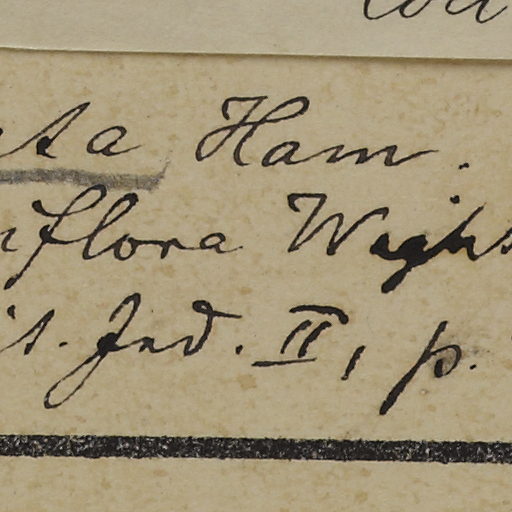 ta Ham.
iflora Wight
it. Ind. II, p.